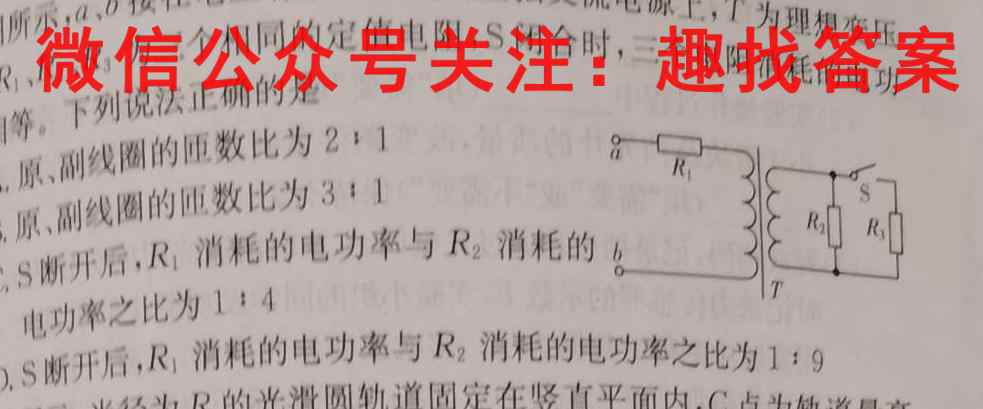 所示,a、b
流电源上,T为理想变压
微信公众号关注：趣找答案
R₁、
个相同的定值电阻,S闭合时,三
消耗的电功
相等。下列说法正确的是
原、副线圈的匝数比为2∶1
原、副线圈的匝数比为3∶1
C.S断开后,R₁消耗的电功率与R₂消耗的
电功率之比为1∶4
D.S断开后,R₁消耗的电功率与R₂消耗的电功率之比为1∶9
半径为R的光滑圆轨道固定在竖直平面内,C点为轨道最高
a
R₁
S
R₂
R₃
b
T